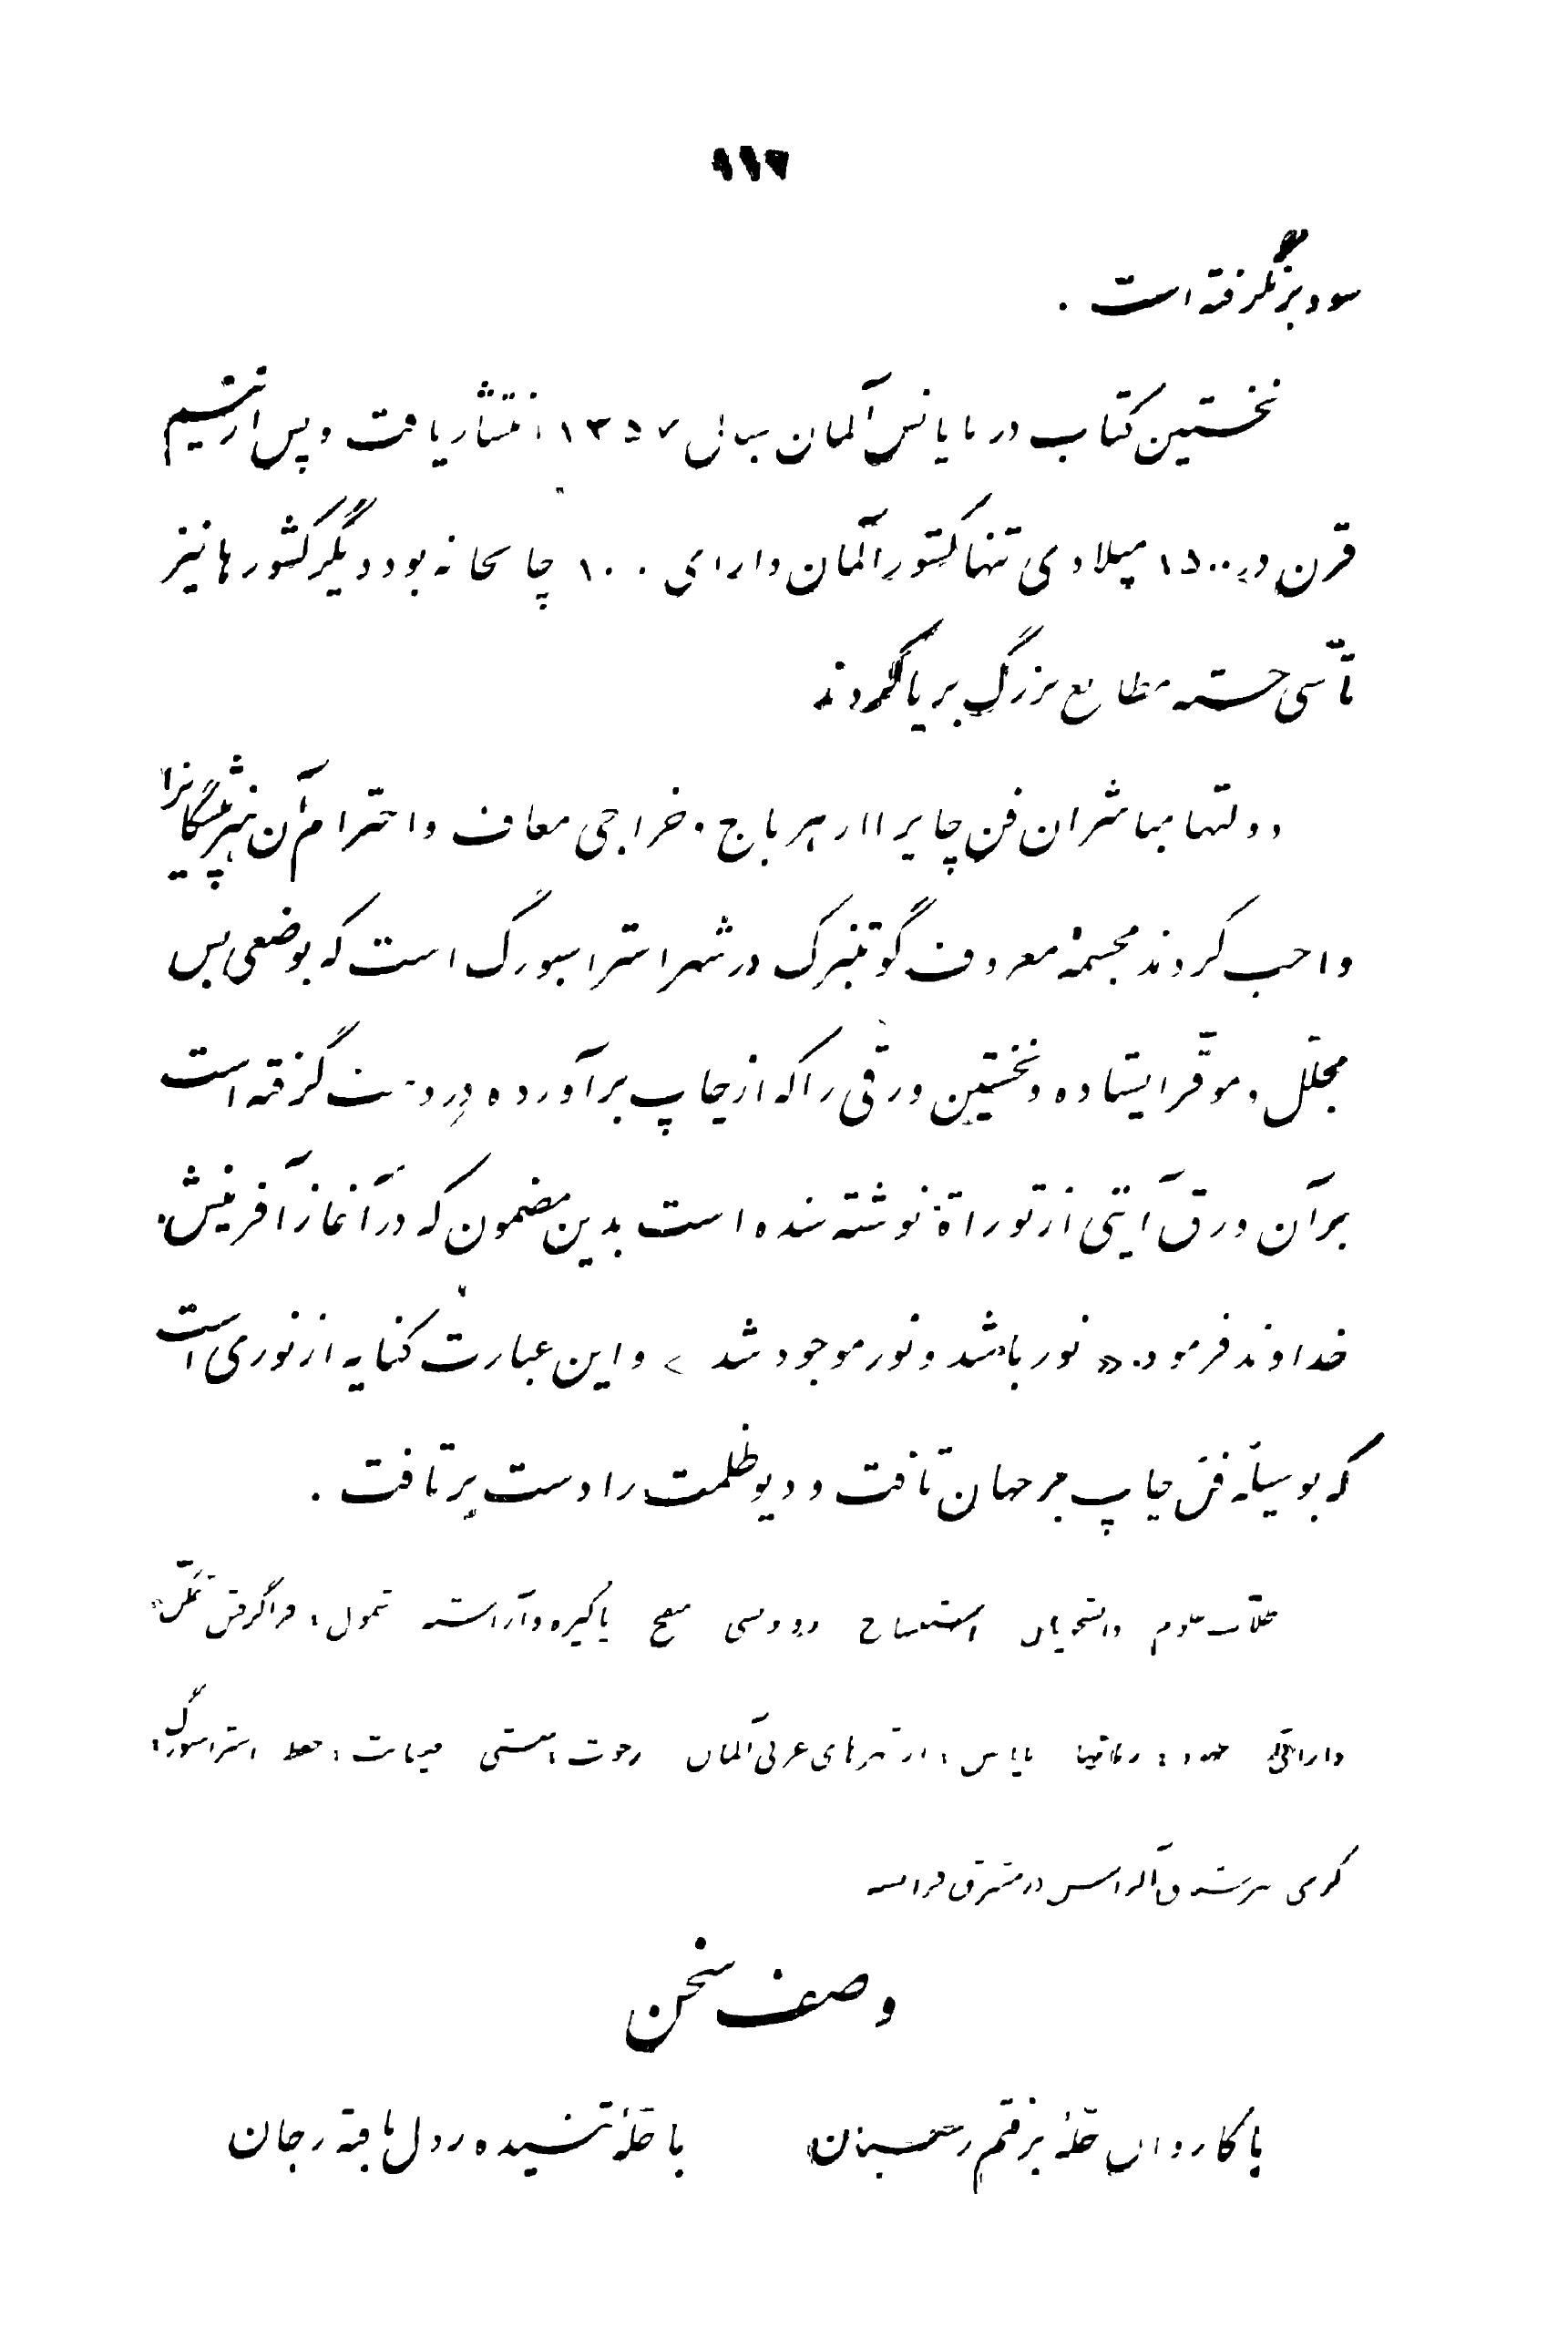 ۱۱۶
سود برگرفته است .
نخستین کتاب در مایانس آلمان بسال ۱۳۵۷ انتشار یافت و پس از نیم
قرن در ۱۵۰۰ میلادی تنها کشور آلمان دارای ۱۰۰ چاپخانه بود و دیگر کشورها نیز
تأسی جسته مطابع بزرگ برپا کردند
دولتها مباشران فن چاپ را از هر باج و خراجی معاف و احترام آن هنرپیشگانرا
واجب کردند مجسمهٔ معروف گوتنبرگ در شهر استراسبورگ است که بوضعی بس
مجلّل و موقّر ایستاده و نخستین ورقی را که از چاپ برآورده در دست گرفته است
بر آن ورق آیتی از توراة نوشته شده است بدین مضمون که در آغاز آفرینش
خداوند فرمود. « نور باشد و نور موجود شد » و این عبارت کنایه از نوری است
که بوسیلهٔ فن چاپ بر جهان تافت و دیو ظلمت را دست برتافت .
طلّاب علوم دانشجویان استنساخ رونویسی منقح پاکیزه و آراسته شمول : فراگرفتن
مایانس : از شهرهای غربی آلمان استراسبورگ :
کرسی آلزاس در مشرق فرانسه
وصف سخن
با کاروان حلّه برفتم ز سیستان با حلّهٔ تنیده ز دل بافته ز جان